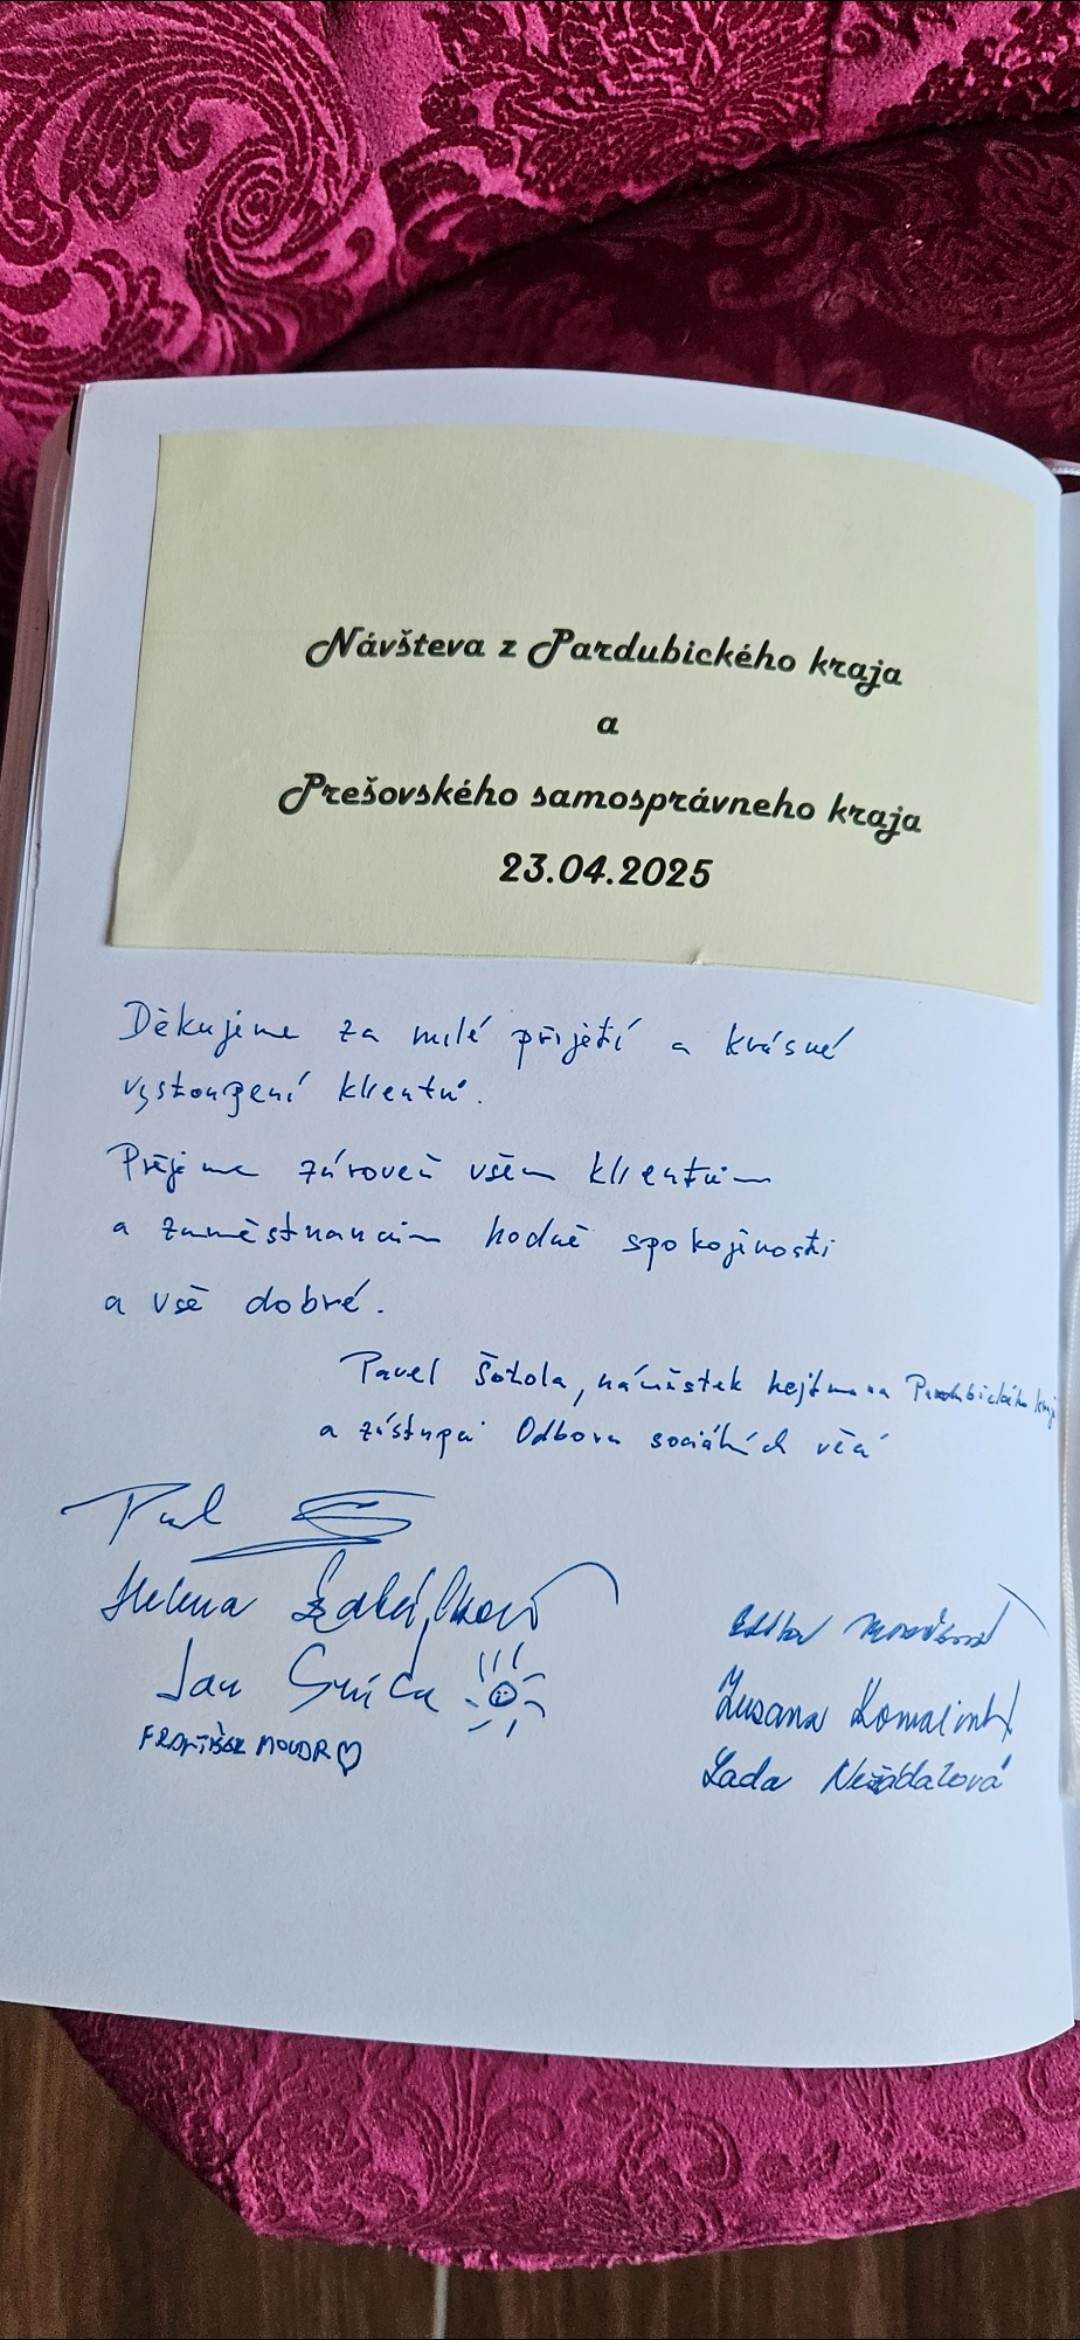 Návšteva z Pardubického kraja
a
Prešovského samosprávneho kraja
23.04.2025
Děkujeme za milé přijetí a krásné
vystoupení klientů.
Přejeme zároveň všem klientům
a zaměstnancům hodně spokojenosti
a vše dobré.
Pavel Šotola, náměstek hejtmana Pardubického kraje
a zástupci Odboru sociálních věcí
Pavel
Helena
Jan
FRANTIŠEK MOUDR
Zuzana
Lada Nezbedalová